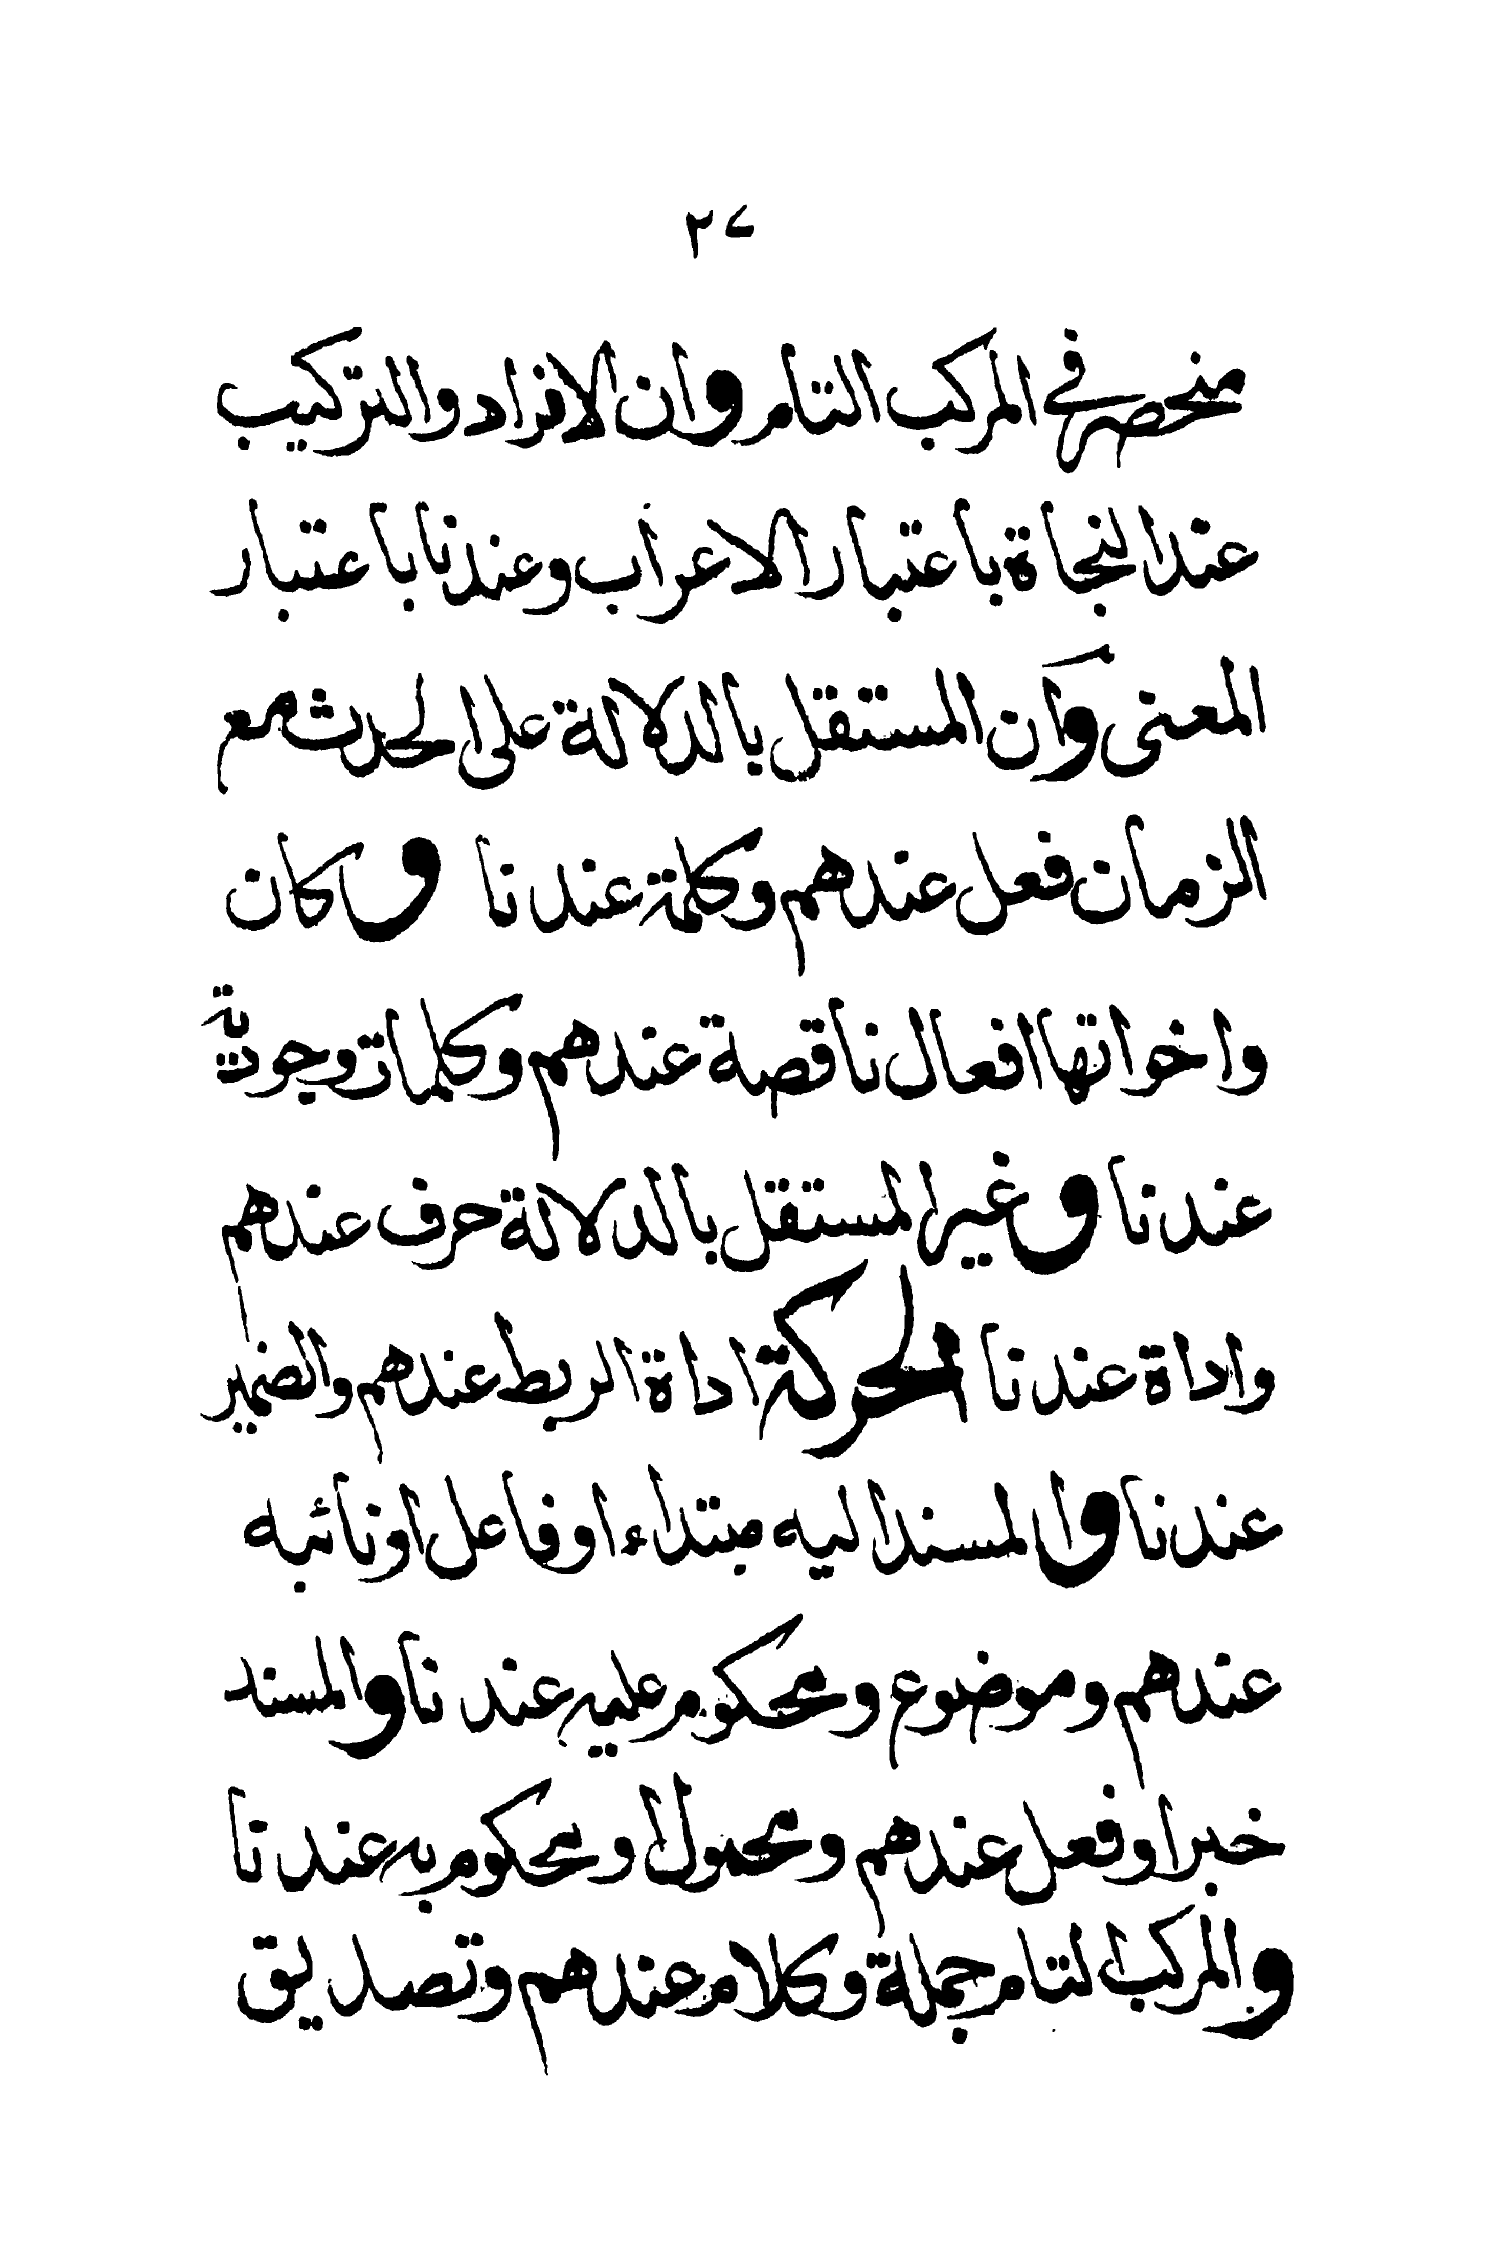 ٢٧
منحصر في المركب التام وان الافراد والتركيب
عند النجاة باعتبار الاعراب وعندنا باعتبار
المعنى وان المستقل بالدلالة على الحدث مع
الزمان فعل عندهم وكلمة عندنا وكان
واخواتها افعال ناقصة عندهم وكلمات وجودية
عندنا وغير المستقل بالدلالة حرف عندهم
واداة عندنا الحركة اداة الربط عندهم والضمير
عندنا والمسند اليه مبتداء او فاعل او نائبه
عندهم وموضوع ومحكوم عليه عندنا والمسند
خبر او فعل عندهم ومحمول او محكوم به عندنا
والمركب التام جملة وكلام عندهم وتصديق